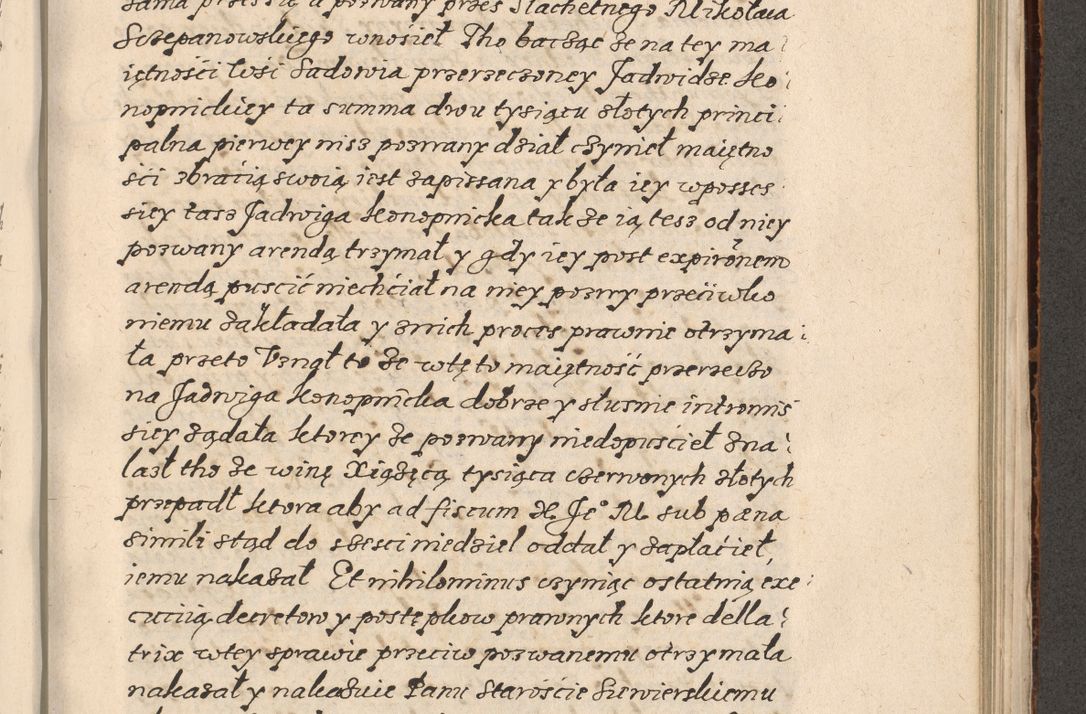 sama przes się a pozwany przes Slachetnego Mikołaia
Sczepanowskiego wnosieł Tho bacząc że na tey ma
iętności wsi Sadowia przerzeczoney Jadwidze Ko
nopnickiey ta summa dwu tysiącu złotych princi
palna pierwey nisz pozwany dział czynieł maiętno
ści zbracią swoią iest zapissana y była iey w posses
siey tasz Jadwiga Konopnicka tak że ią tesz od niey
pozwany arendą trzymał y gdy iey post expironem
arendą puscić niechciał na niey pozwy przeciwko
niemu zakładała y znich proces prawnie otrzyma
ła przeto Uznał to że w tę to maiętność przerzeczo
na Jadwiga Konopnicka dobrze y słusnie intromis
siey żądała ktorey że pozwany niedopuscieł zna
lasł tho że winę Xiążęcą tysiąca czerwonych złotych
przepadł ktora aby ad fiscum X. Je° M. sub pæna
simili stąd do szesci niedziel oddał y zapłacieł
iemu nakazał Et nihilominus czyniąc ostatnią exe
cutiią decretow y postępkow prawnych ktore della
trix w tey sprawie przeciw pozwanemu otrzymała
nakazał y nakazuie Panu Staroście Siewierskiemu